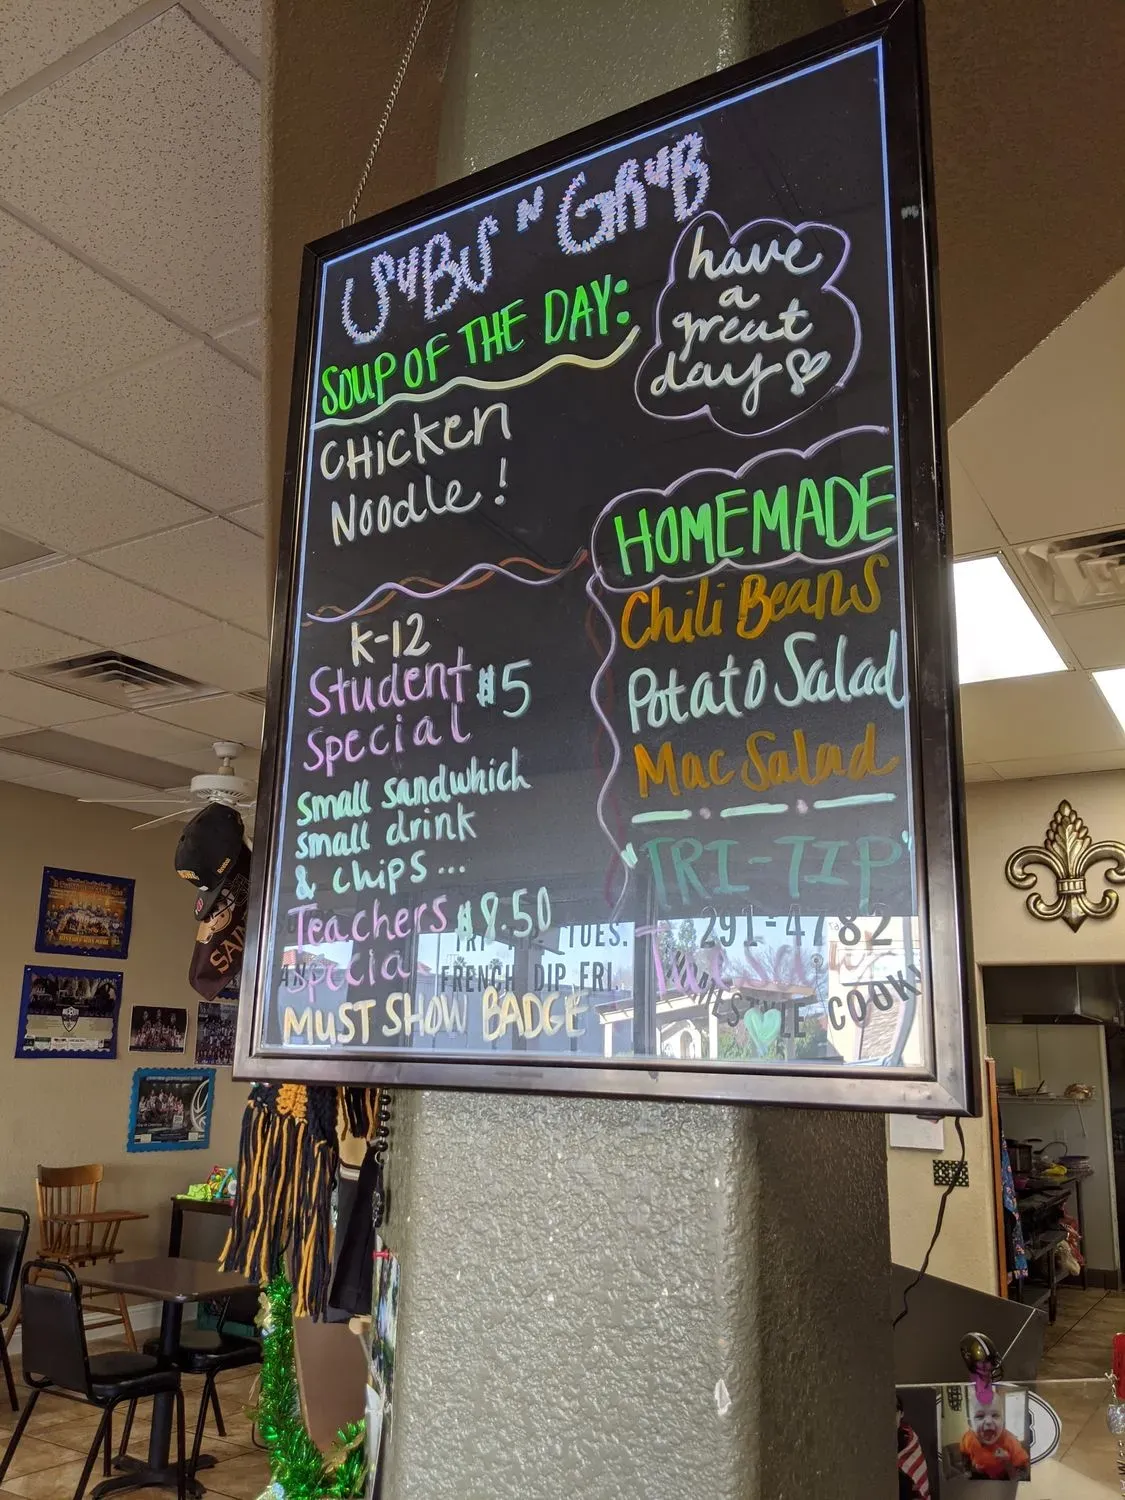 SUBS N GRUB
SOUP OF THE DAY:
CHICKEN
NOODLE!
have
a
great
day
K-12
Student $5
Special
Small sandwhich
small drink
& chips...
Teachers $8.50
Special
MUST SHOW BADGE
HOMEMADE
Chili Beans
Potato Salad
Mac Salad
"TRI-TIP"
Tuesday
291-4782
TUES.
FRENCH DIP FRI.
COOK
SAIN